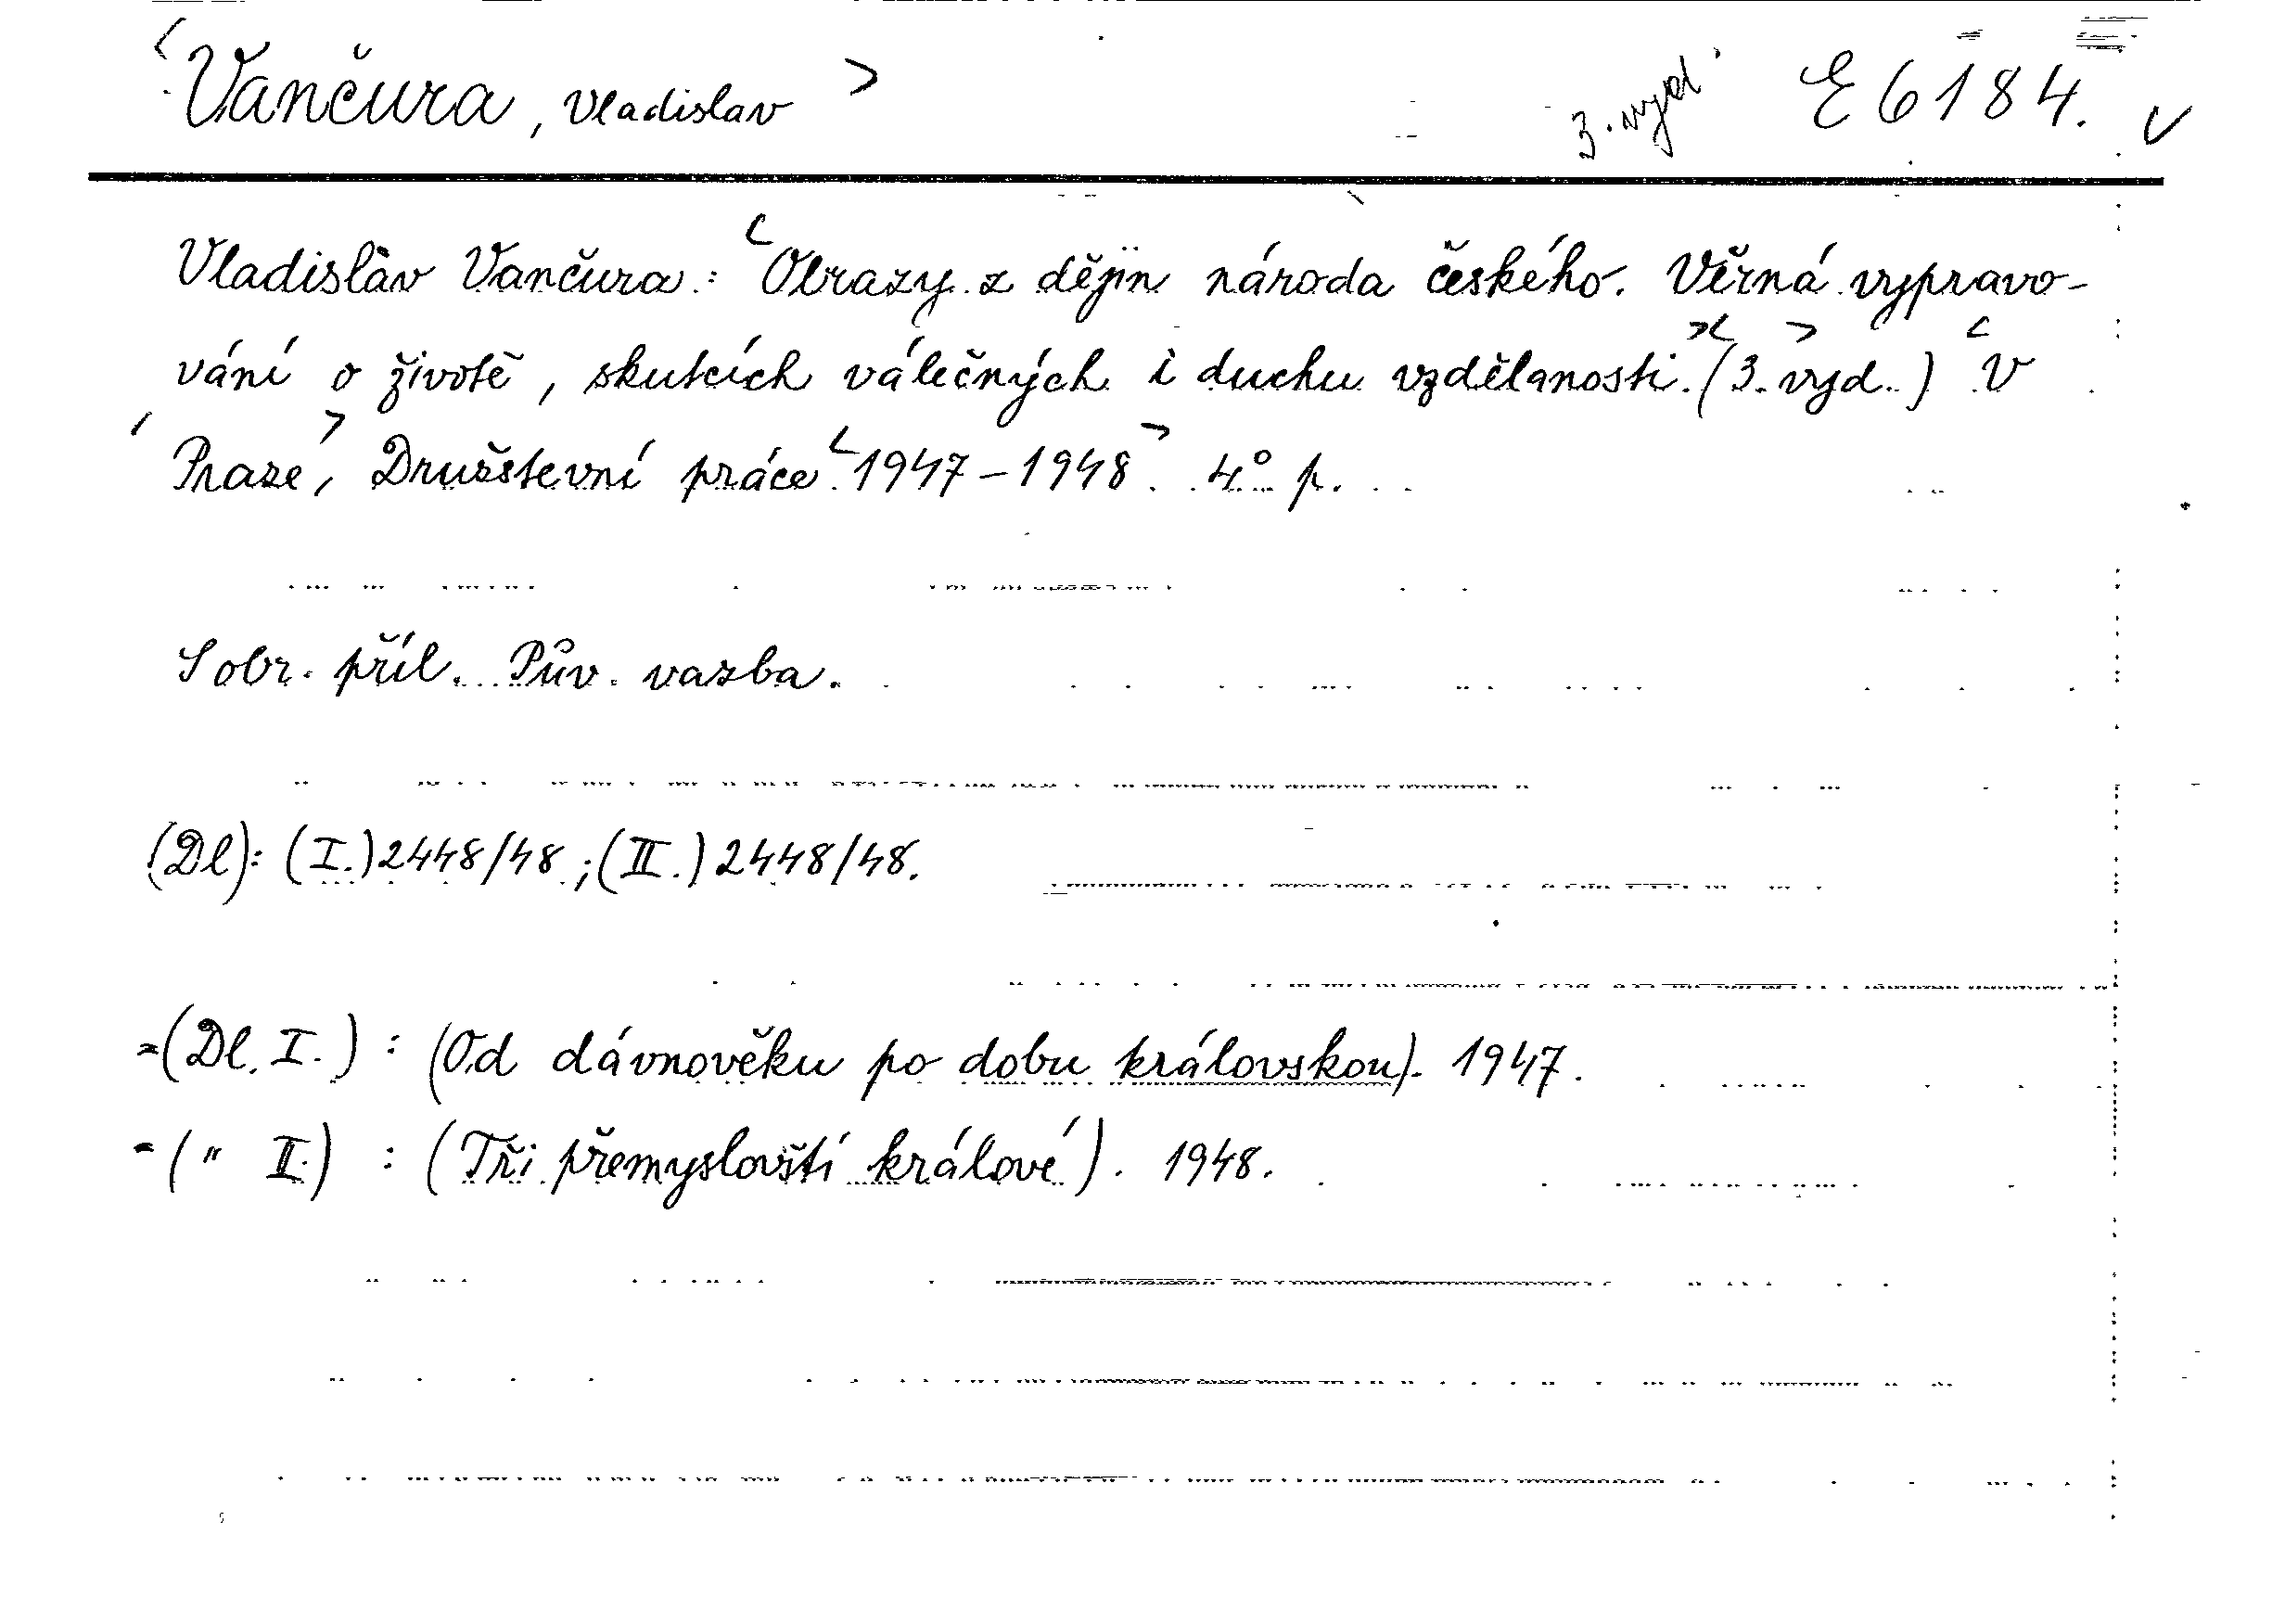 <Vančura, Vladislav> 3. vyd. E 6184. v
Vladislav Vančura: <Obrazy z dějin národa českého. Věrná vypravo-
vání o životě, skutcích válečných i duchu vzdělanosti.><(3. vyd.)> <V
Praze>, Družstevní práce <1947-1948>. 4° p.
S obr. příl. Pův. vazba.
(Dl): (I.) 2448/48; (II.) 2448/48.
=(Dl. I.) : (Od dávnověku po dobu královskou). 1947.
=( " II.) : (Tři přemyslovští králové). 1948.